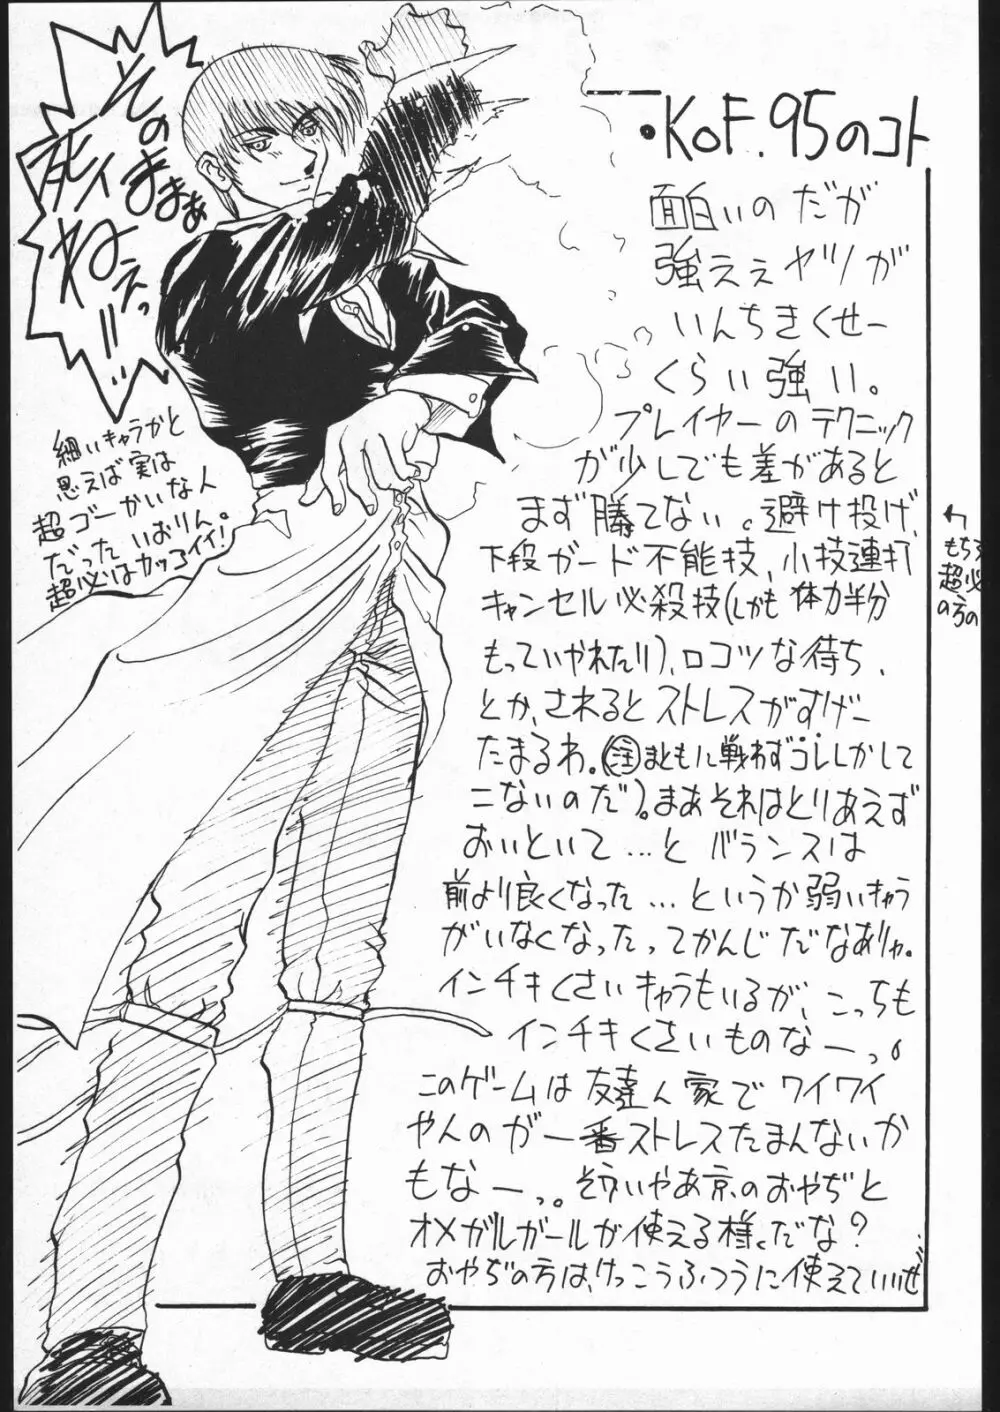 ・KOF.95のコト
面白いのだが
強ええヤツが
いんちきくせー
くらい強い。
プレイヤーのテクニック
が少しでも差があると
まず勝てない。避け投げ、
下段ガード不能技、小技連打
キャンセル必殺技(しかも体力半分
もっていかれたり)、ロコツな待ち、
とか、されるとストレスがすげー
たまるわ。(注まともに戦わずコレしかして
こないのだ)。まあそれはとりあえず
おいといて…と バランスは
前より良くなった…というか弱いキャラ
がいなくなったってかんじだなありゃ。
インチキくさいキャラもいるが、こっちも
インチキくさいものなーっ。
このゲームは友達ん家でワイワイ
やんのが一番ストレスたまんないか
もなーっ。そういやあ京のおやぢと
オメガルガールが使える様だな?
おやぢの方は、けっこうふつうに使えていいぜ…
そのままぁ
死ィ
ねえっ!!…
細いキャラかと
思えば実は
超ゴーかいな人
だったいおりん。
超必はカッコイイ!
もち
超必
の方の